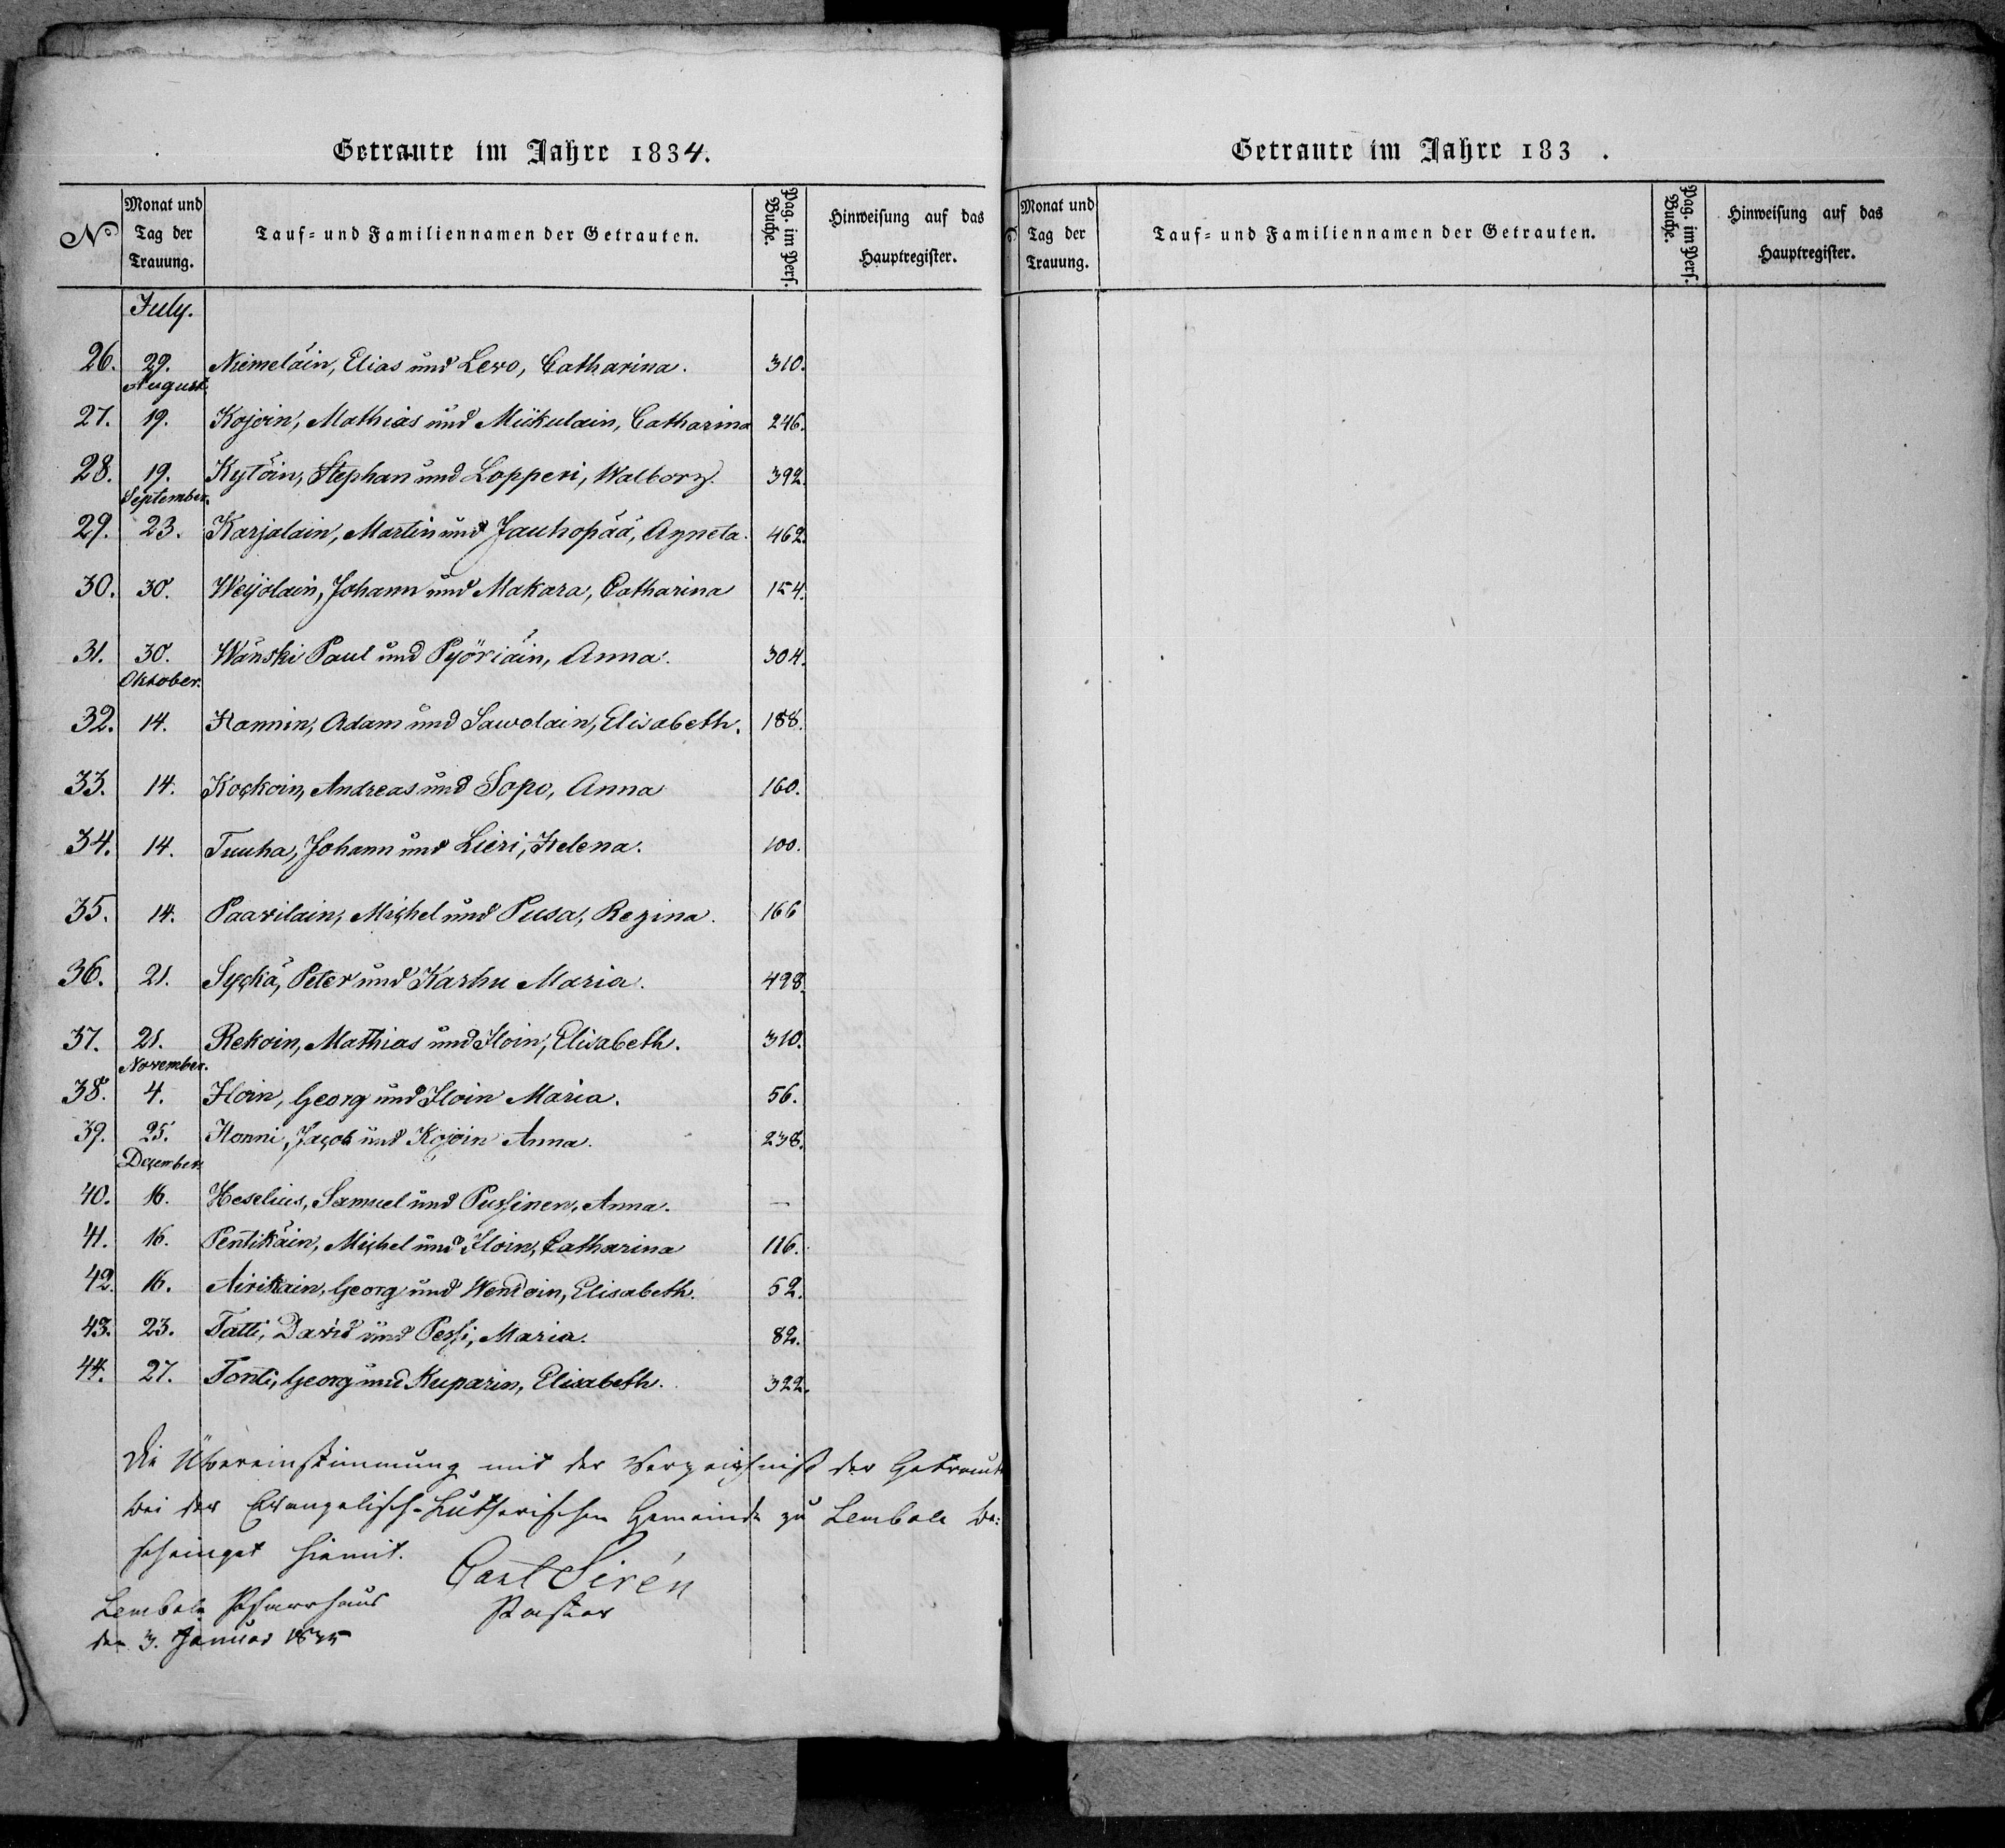 Getraute im Jahre 1834.
No Monat und Tag der Trauung. Tauf- und Familiennamen der Getrauten. Pag. im Pers. Buche. Hinweisung auf das Hauptregister.
July.
26. 29. Niemeläin, Elias und Levo, Catharina. 310.
August.
27. 19. Kojoin, Mathias und Mükulain, Catharina 246.
28. 19. Kytöin, Stephan und Lopperi, Walborg. 392.
September.
29. 23. Karjalain, Martin und Jauhopää, Agneta. 462.
30. 30. Weijolain, Johann und Makara, Catharina 154.
31. 30. Wänski Paul und Pyöriäin, Anna. 304.
Oktober.
32. 14. Hannin, Adam und Sawolain, Elisabeth. 188.
33. 14. Kockoin, Andreas und Sopo, Anna 160.
34. 14. Tuuha, Johann und Lieri, Helena. 100.
35. 14. Paavilain, Michel und Pusa, Regina. 166
36. 21. Syckä, Peter und Karhu Maria. 498.
37. 21. Rekoin, Mathias und Iloin, Elisabeth. 310.
November.
38. 4. Iloin, Georg und Iloin Maria. 56.
39. 25. Honni, Jacob und Kojoin Anna. 238.
December.
40. 16. Heselius, Samuel und Pussinen, Anna. —
41. 16. Pentikäin, Michel und Iloin, Catharina 116.
42. 16. Airikain, Georg und Wentoin, Elisabeth. 52.
43. 23. Tatti, David und Pessi, Maria. 82.
44. 27. Tonti, Georg und Kuparin, Elisabeth. 322.
Die Übereinstimmung mit der Verzeichniß der Getraute
bei der Evangelisch-Lutherischen Gemeinde zu Lembala be-
scheinget hiemit.
Carl Sirén
Pastor
Lembala Pfarrhaus
den 3. Januar 1835
Getraute im Jahre 183 .
Monat und Tag der Trauung. Tauf- und Familiennamen der Getrauten. Pag. im Pers. Buche. Hinweisung auf das Hauptregister.